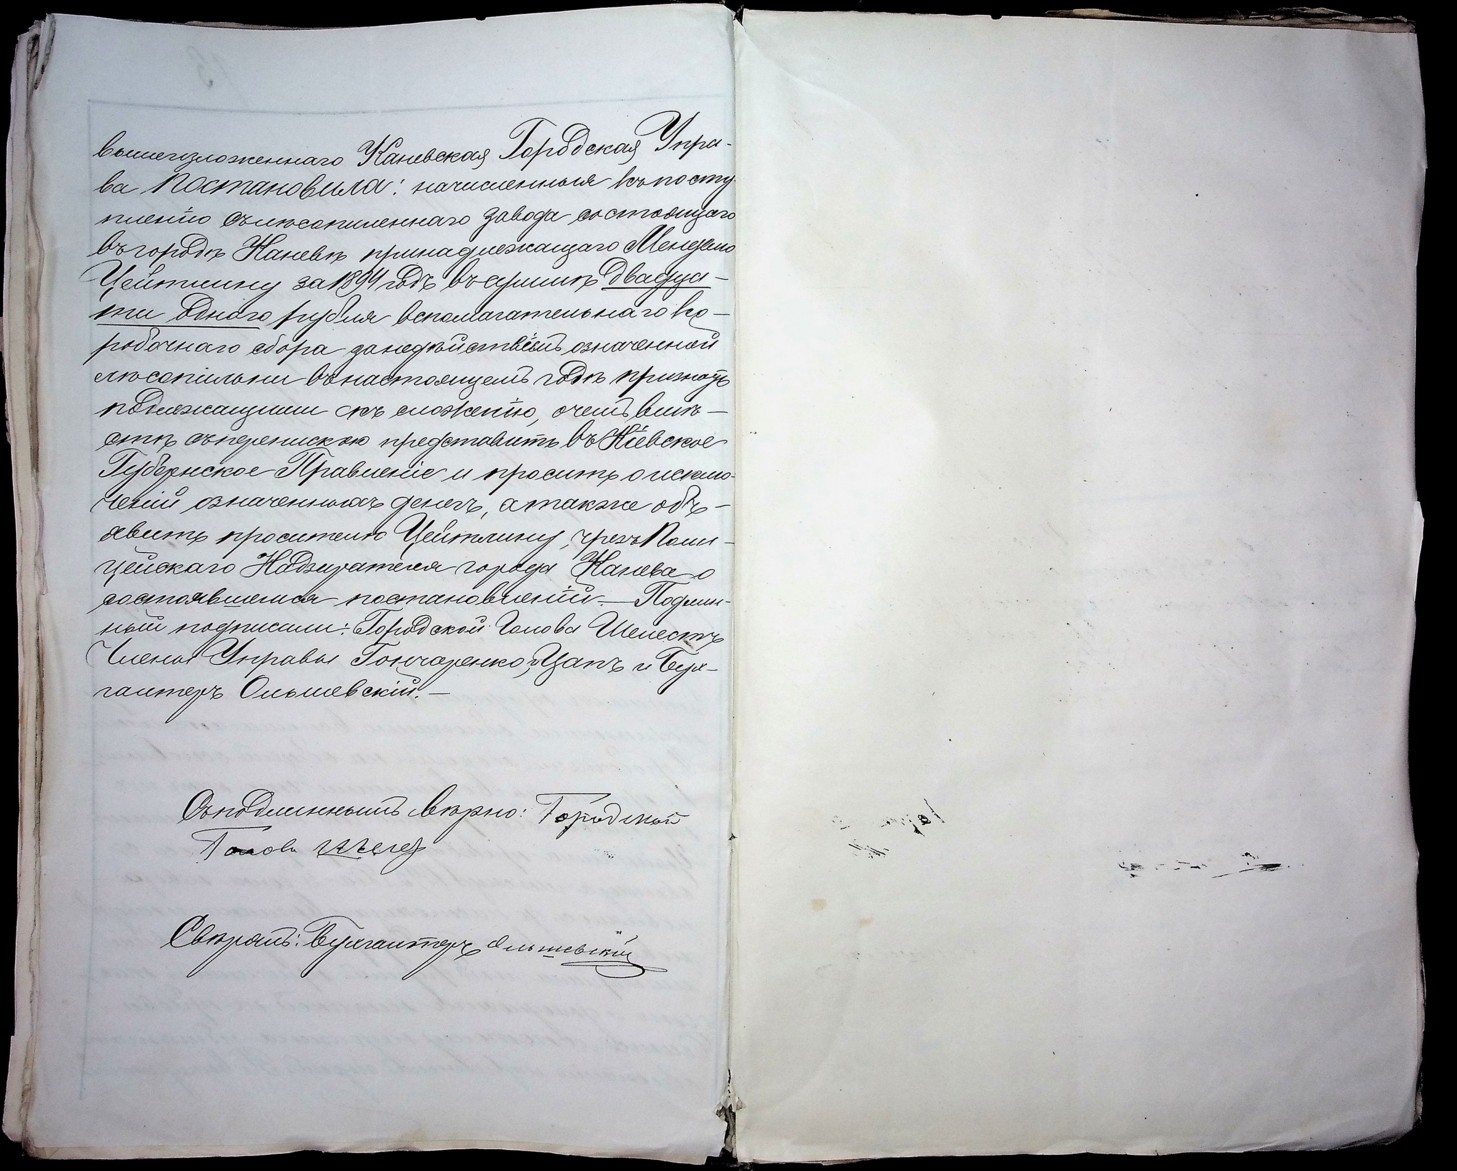 вышеизложеннаго Каневская Городская Упра-
ва Постановила: начисленныя къ посту-
пленію съ лѣсопиленнаго завода состоящаго
въ городѣ Каневѣ принадлежащаго Менделю
Цейтлину за 1899 годъ въ суммѣ двадца-
ти одного рубля вспомагательнаго ко-
робочнаго сбора за недѣйствіемъ означенной
лѣсопильни въ настоящемъ годѣ признать
подлежащими къ сложенію, о чемъ вмѣ-
стѣ съ перепискою представить въ Кіевское
Губернское Правленіе и просить о исклю-
ченіи означенныхъ денегъ, а также объ-
явить просителю Цейтлину, чрезъ Поли-
цейскаго Надзирателя города Канева о
состоявшемся постановленіи. — Подлин-
ный подписали: Городской Голова Шелестъ
Члены Управы Гончаренко, Цапъ и Бух-
галтеръ Ольшевскій. —
Съ подлиннымъ вѣрно: Городской
Голова
Свѣрялъ: Бухгалтеръ Ольшевскій